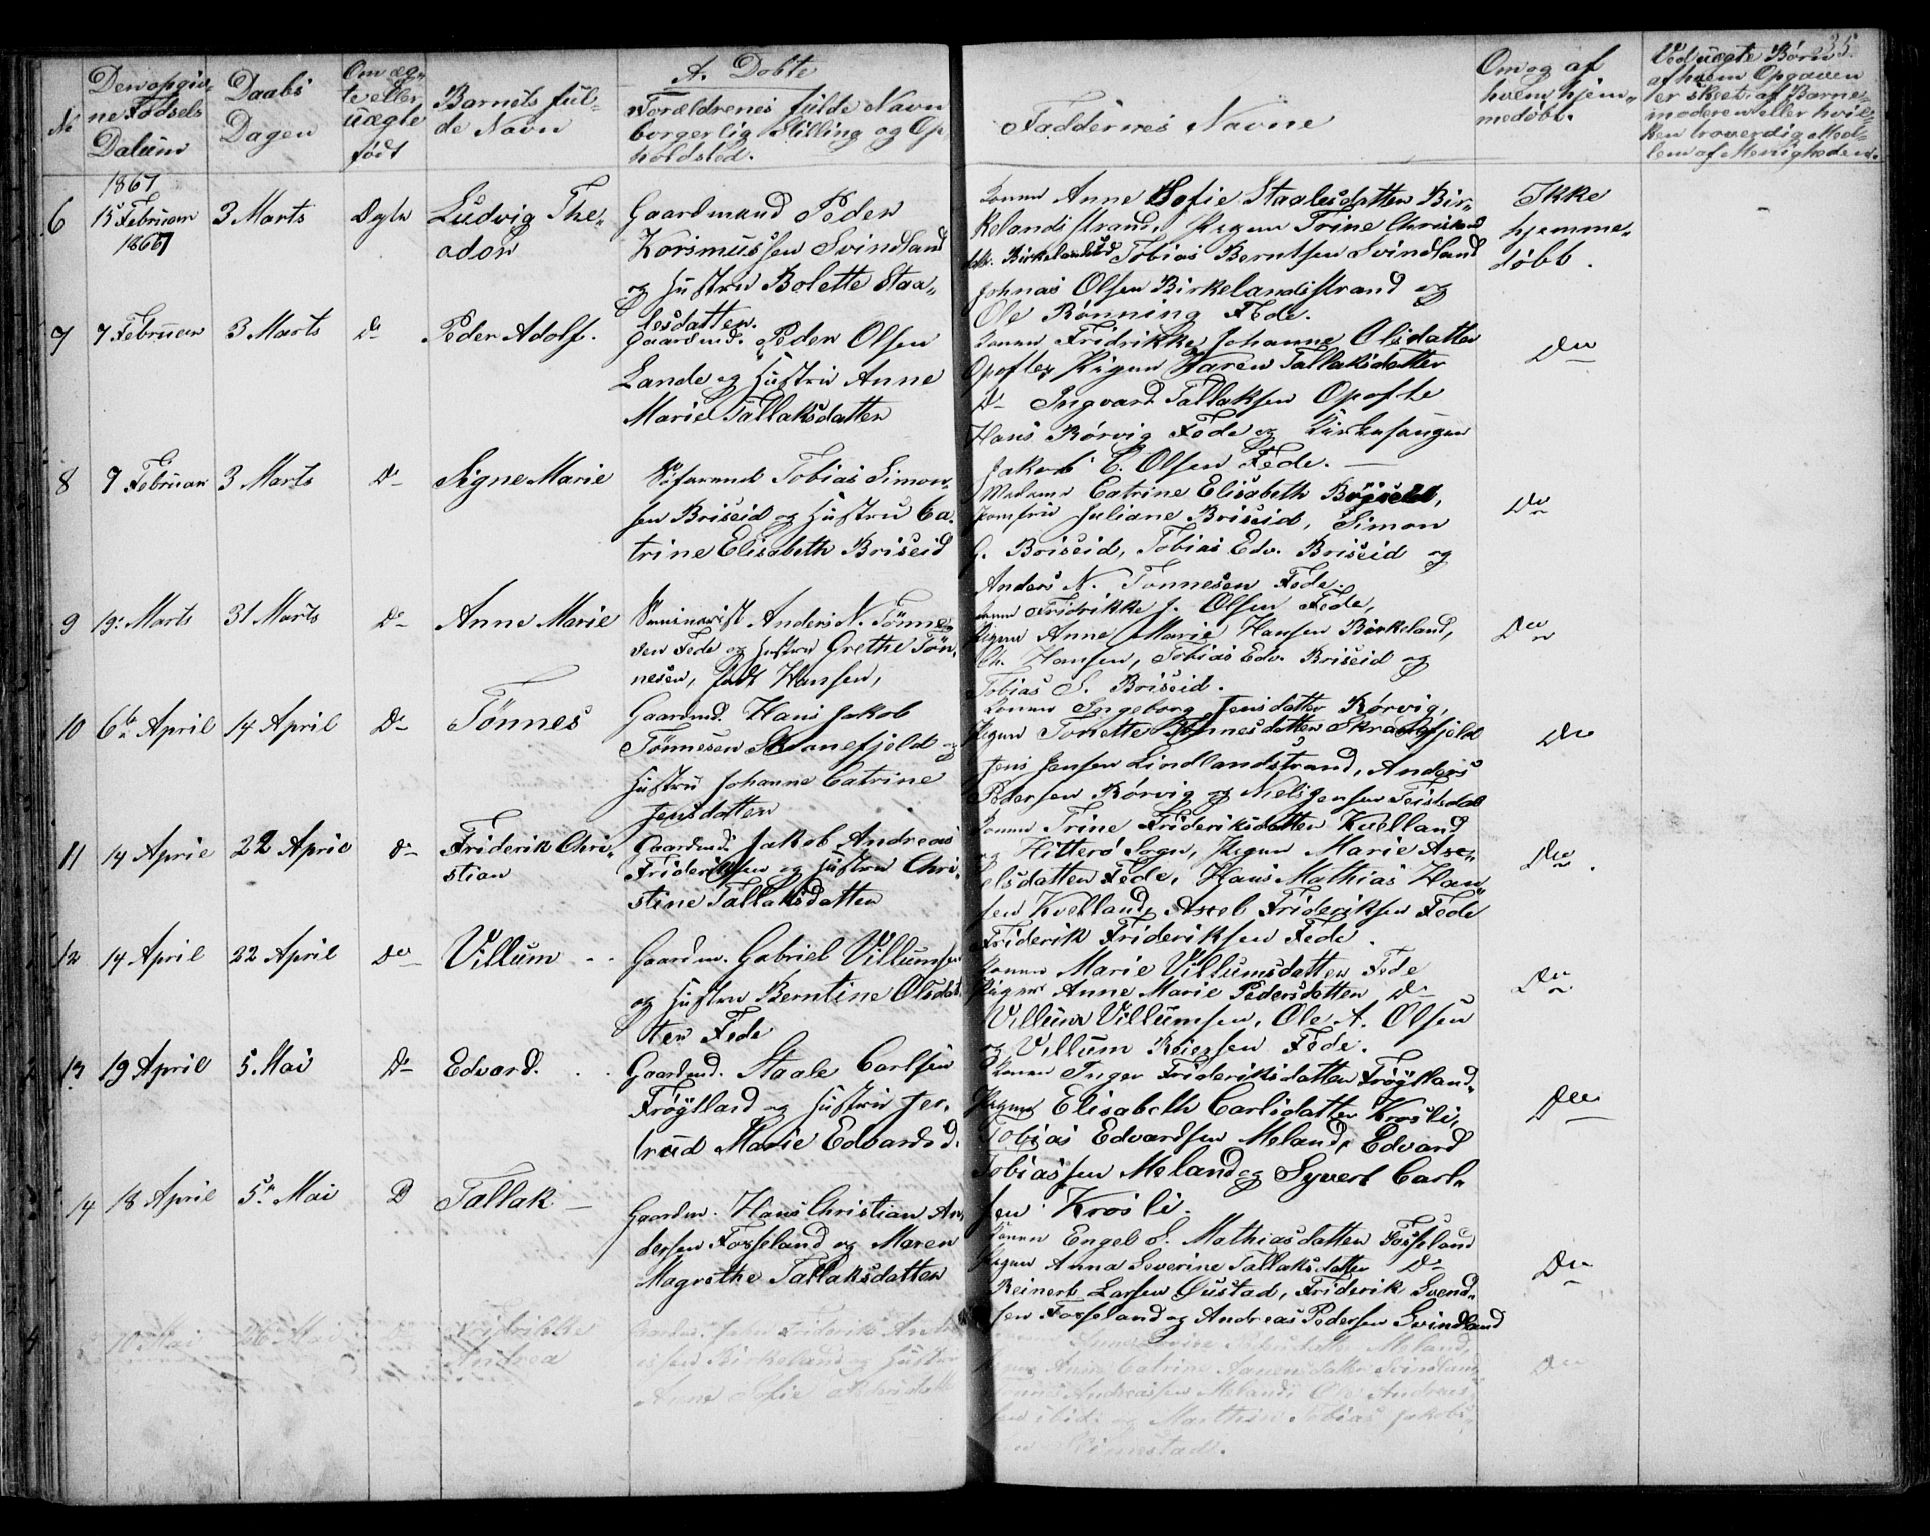 35.
A. Døbte
No
Den opgiv-
ne Fødsels
Datum
Daabs
Dagen
Om æg-
te eller
uægte
født
Barnets ful-
de Navn
Forældrenes fulde Navn
borgerlig Stilling og Op-
holdsted.
Faddernes Navne
Om og af
hvem hjem-
medøbt.
Ved uægte Børn
af hvem Opgaven
er skeet: af Barne-
moderen eller hvil-
ken troværdig Med-
lem af Menigheden.
1867
6
15 Februar
1867
3 Marts
Ægte
Ludvig The-
odor
Gaardmand Peder
Korsmussen Svindland
og Hustru Bolette Staa-
lesdatter.
Konen Anne Sofie Staalesdatter Bir-
kelandsstrand, Pigen Trine Christens
dtr. Birkeland Tobias Berntsen Svindland
Johnas Olsen Birkelandsstrand og
Ole Rønning Fede.
Ikke
hjemme-
døbt.
7
7 Februar
3 Marts
Do
Peder Adolf.
Gaardmd. Peder Olsen
Lande og Hustru Anne
Marie Tallaksdatter
Konen Fridrikke Johanne Olsdatter
Opofte, Pigen Karen Tallaksdatter
Do Ingvard Tallaksen Opofte
Hans Rørvig Fede og Kirkesanger
Jakob C. Olsen Fede.
Do
8
7 Februar
3 Marts
Do
Signe Marie
Søfarende Tobias Simon-
sen Briseid og Hustru Ca-
trine Elisabeth Briseid
Madame Catrine Elisabeth
Jomfru Juliane Briseid, Simon
G. Briseid, Tobias Edv. Briseid og
Anders N. Tønnesen Fede.
Do
9
19. Marts
31 Marts
Do
Anne Marie
Seminarist Anders N. Tønne-
sen Fede og Hustru Grethe Tøn-
nesen, født Hansen,
Konen Fridrikke J. Olsen Fede,
Pigen Anne Marie Hansen Birkeland,
Ch. Hansen, Tobias Edv. Briseid og
Tobias S. Briseid.
Do
10
6te April
14 April
Do
Tønnes
Gaardmd. Hans Jakob
Tønnesen Skranefjeld og
Hustru Johanne Catrine
Jensdatter
Konen Ingeborg Jensdatter Rørvig,
Pigen Tonette Tønnesdatter Skranefjeld
Jens Jensen Lindlandstrand, Anders
Pedersen Rørvig og Niels Jensen Feisteda
Do
11
14 April
22 April
Do
Friderik Chri-
stian
Gaardmd. Jakob Andreas
Frideriksen og Hustru Chri-
stine Tallaksdatter
Konen Trine Frideriksdatter Kvelland
og Hitterø Sogn, Pigen Marie Axe-
elsdatter Fede, Hans Mathias Han-
sen Kvelland, Axel Frideriksen Fede
Friderik Frideriksen Fede.
Do
12
14 April
22 April
Do
Villum
Gaardm. Gabriel Villumsen
og Hustru Berntine Olsdat-
ter Fede
Konen Marie Villumsdatter Fede
Pigen Anne Marie Pedersdatter Do
Villum Villumsen, Ole A. Olsen
og Villum Reiersen Fede.
Do
13
19 April
5. Mai
Do
Edvard.
Gaardmd. Staale Carlsen
Frøylland og Hustru Jer-
trud Marie Edvardsd.
Konen Inger Frideriksdatter Frøylland,
Pigen Elisabeth Carlsdatter Krosli,
Tobias Edvardsen Meland, Edvard
Tobiassen Meland og Syvert Carl-
sen Krosli.
Do
14
18 April
5. Mai
D
Tallak
Gaardm. Hans Christian An-
dersen Fosseland og Maren
Magrethe Tallaksdatter
Konen Engel S. Mathiasdatter Fosseland
Pigen Anna Severine Tallaksdatter Do
Reinert Larsen Øustad, Friderik Svend-
sen Fosseland og Andreas Pedersen Svindland
Do
10 Mai
26 Mai
Fridrikke
Andrea
Friderik Andre-
assen Birkeland og Hustru
Anne Sofie
Meland,
Pigen Anne Catrine Aanensdatter Svindland
Tønnes Andreassen Meland, Ole Andreas-
sen ibid. og Marthin Tobias Jakobs-
Do